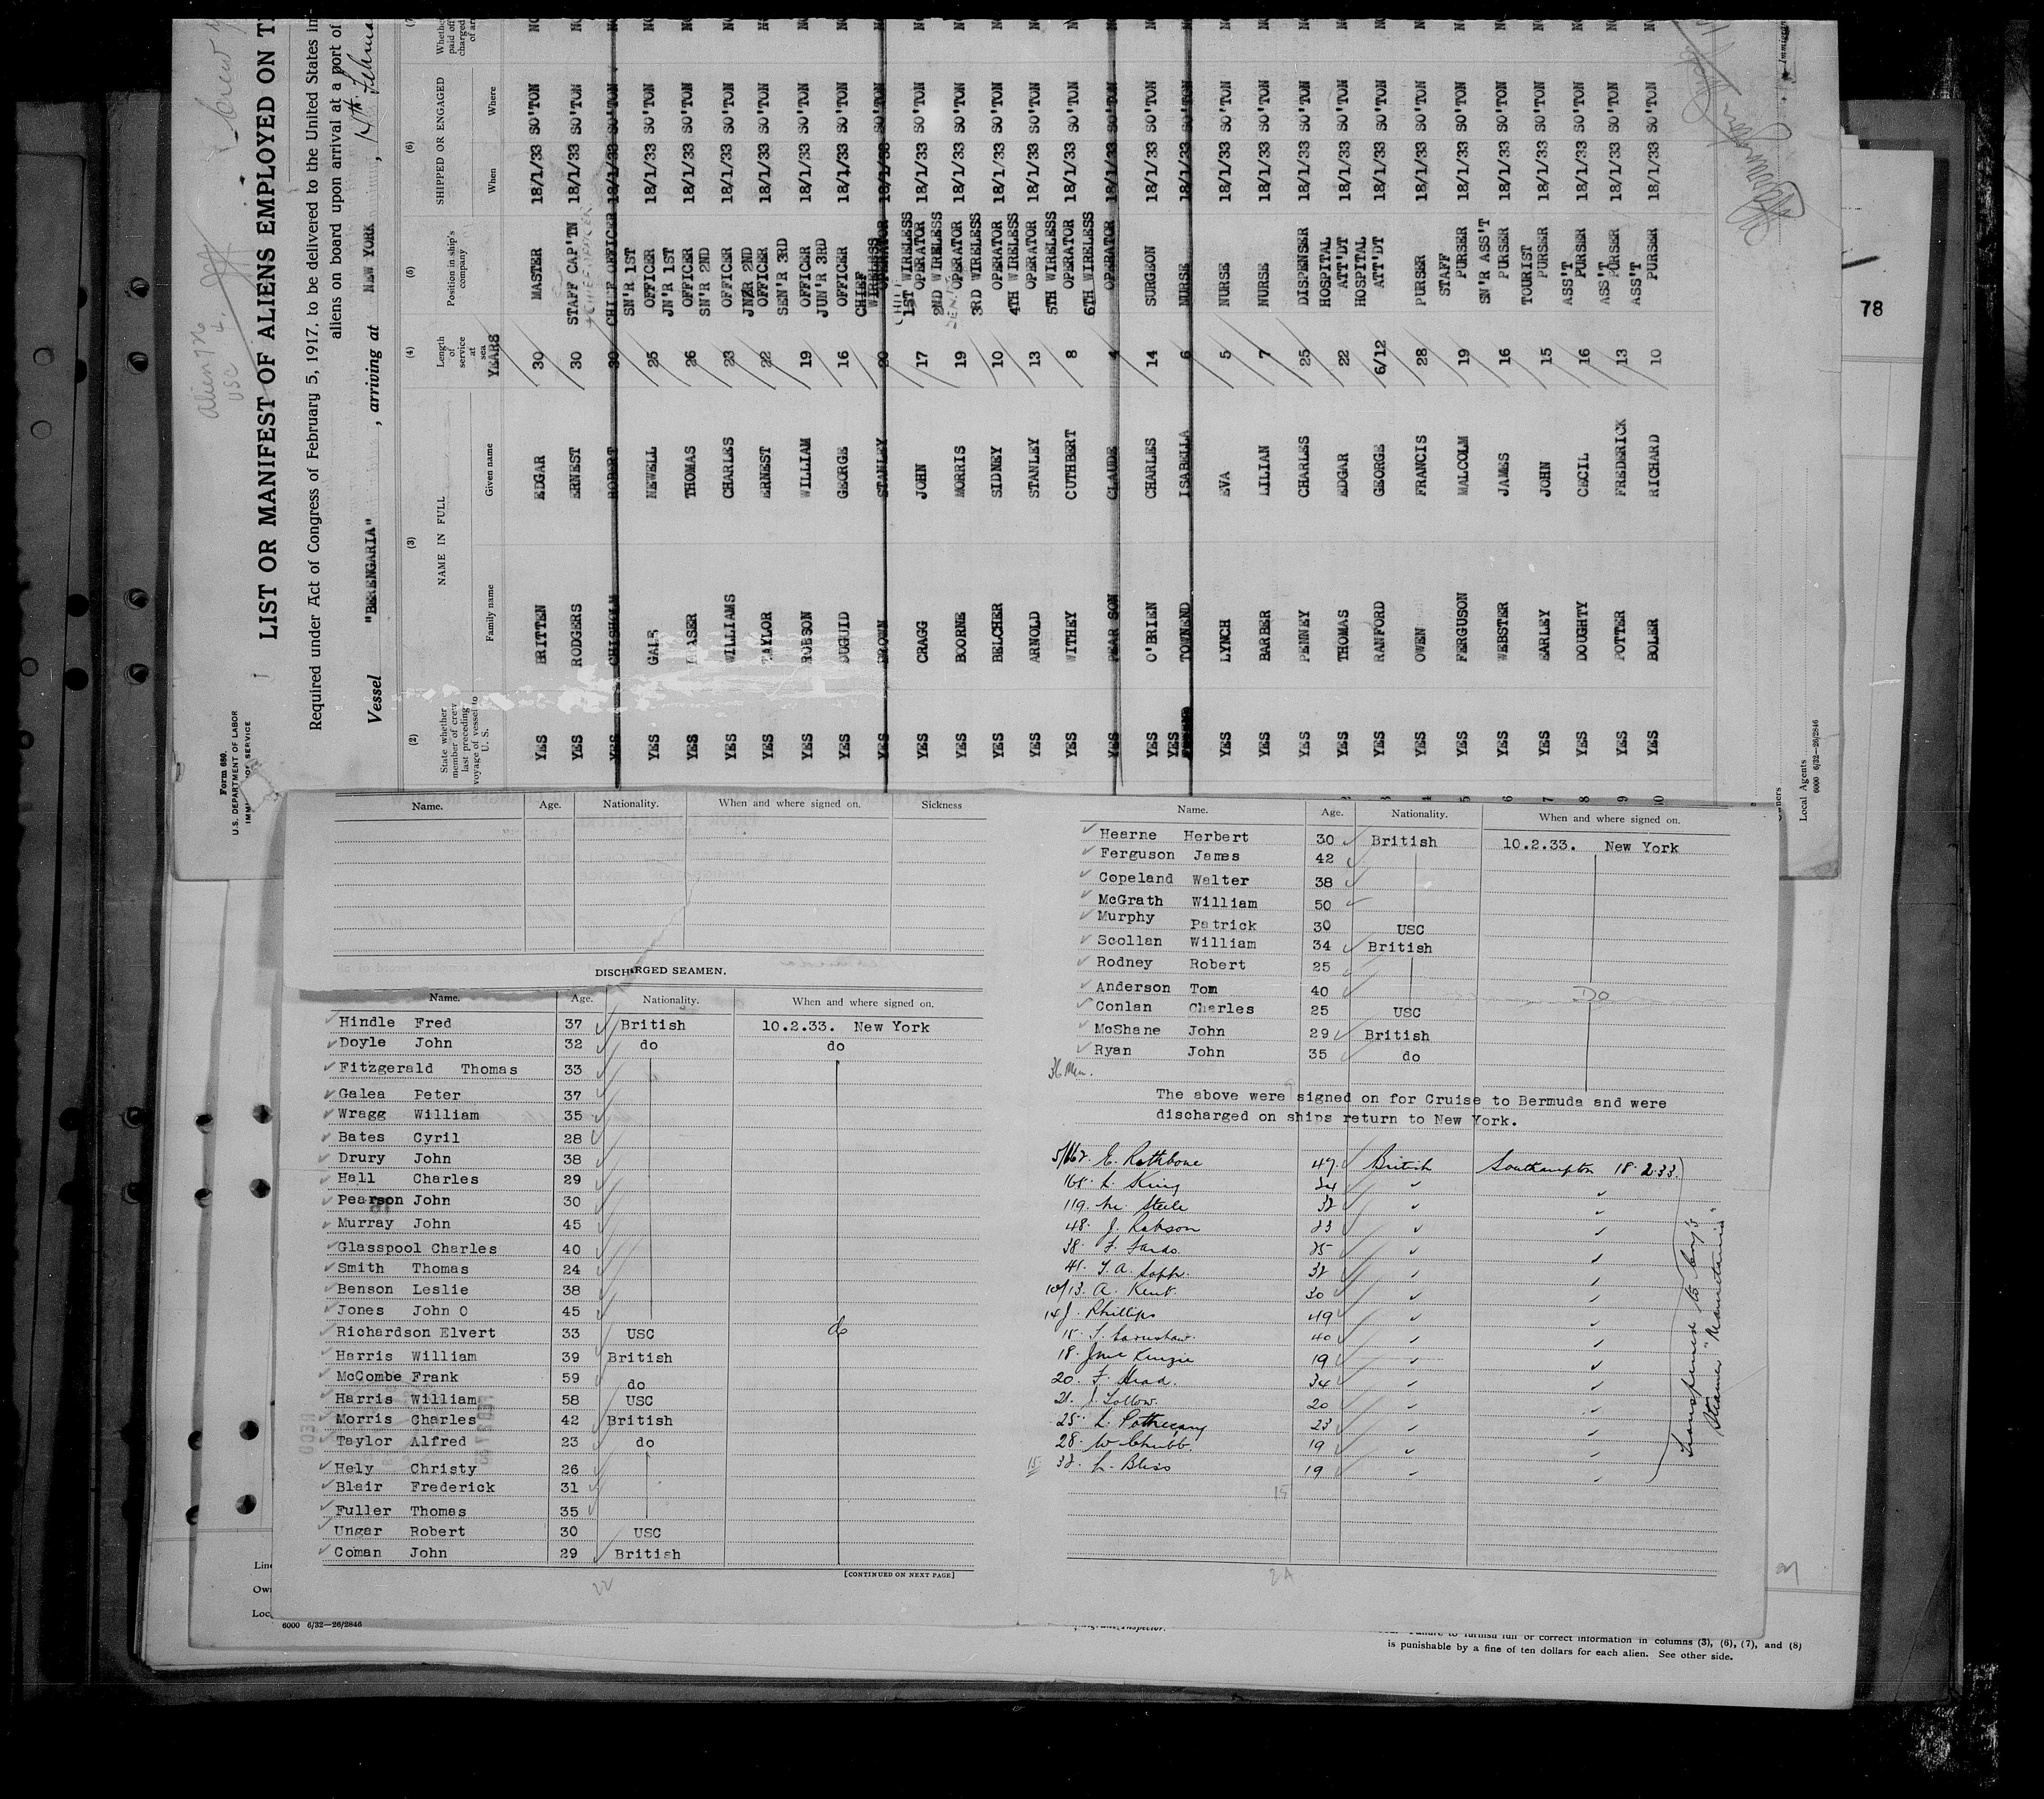 Form 680.
U.S. DEPARTMENT OF LABOR
SERVICE
Alien 726
USC 4.
LIST OR MANIFEST OF ALIENS EMPLOYED ON T
Required under Act of Congress of February 5, 1917, to be delivered to the United States
aliens on board upon arrival at a port of
Vessel "BERENGARIA", arriving at NEW YORK, 14th.
(2) (3) (4) (5) (6)
State whether member of crew last preceding voyage of vessel to U. S.
NAME IN FULL
Family name Given name
Length of service at sea YEARS
Position in ship's company
SHIPPED OR ENGAGED
When Where
YES BRITTEN EDGAR 30 MASTER 18/1/33 SO'TON
YES RODGERS ERNEST 30 STAFF CAP'TN 18/1/33 SO'TON
YES CHISHOLM ROBERT 30 CHIEF OFFICER 18/1/33 SO'TON
YES GALE NEWELL 25 SN'R 1ST OFFICER 18/1/33 SO'TON
YES THOMAS 26 JN'R 1ST OFFICER 18/1/33 SO'TON
YES WILLIAMS CHARLES 23 SN'R 2ND OFFICER 18/1/33 SO'TON
YES TAYLOR ERNEST 22 JN'R 2ND OFFICER 18/1/33 SO'TON
YES ROBSON WILLIAM 19 SEN'R 3RD OFFICER 18/1/33 SO'TON
YES DUGUID GEORGE 16 JUN'R 3RD OFFICER 18/1/33 SO'TON
YES BROWN STANLEY 20 CHIEF WIRELESS OPERATOR 18/1/33 SO'TON
YES CRAGG JOHN 17 1ST WIRELESS OPERATOR 18/1/33 SO'TON
YES BOORNE MORRIS 19 2ND WIRELESS OPERATOR 18/1/33 SO'TON
YES BELCHER SIDNEY 10 3RD WIRELESS OPERATOR 18/1/33 SO'TON
YES ARNOLD STANLEY 13 4TH WIRELESS OPERATOR 18/1/33 SO'TON
YES WITHEY CUTHBERT 8 5TH WIRELESS OPERATOR 18/1/33 SO'TON
YES PEAR SON CLAUDE 4 6TH WIRELESS OPERATOR 18/1/33 SO'TON
YES O'BRIEN CHARLES 14 SURGEON 18/1/33 SO'TON
YES TOWNEND ISABELLA 6 NURSE 18/1/33 SO'TON
YES LYNCH EVA 5 NURSE 18/1/33 SO'TON
YES BARBER LILIAN 7 NURSE 18/1/33 SO'TON
YES PENNEY CHARLES 25 DISPENSER 18/1/33 SO'TON
YES THOMAS EDGAR 22 HOSPITAL ATT'DT 18/1/33 SO'TON
YES RANFORD GEORGE 6/12 HOSPITAL ATT'DT 18/1/33 SO'TON
YES OWEN FRANCIS 28 PURSER 18/1/33 SO'TON
YES FERGUSON MALCOLM 19 STAFF PURSER 18/1/33 SO'TON
YES WEBSTER JAMES 16 SN'R ASS'T PURSER 18/1/33 SO'TON
YES EARLEY JOHN 15 TOURIST PURSER 18/1/33 SO'TON
YES DOUGHTY CECIL 16 ASS'T PURSER 18/1/33 SO'TON
YES POTTER FREDERICK 13 ASS'T PURSER 18/1/33 SO'TON
YES BOLER RICHARD 10 ASS'T PURSER 18/1/33 SO'TON
Local Agents
6000 6/32—26/2846
78
Name. Age. Nationality. When and where signed on. Sickness
DISCHARGED SEAMEN.
Name. Age. Nationality. When and where signed on.
Hindle Fred 37 British 10.2.33. New York
Doyle John 32 do do
Fitzgerald Thomas 33
Galea Peter 37
Wragg William 35
Bates Cyril 28
Drury John 38
Hall Charles 29
Pearson John 30
Murray John 45
Glasspool Charles 40
Smith Thomas 24
Benson Leslie 38
Jones John O 45
Richardson Elvert 33 USC do
Harris William 39 British
McCombe Frank 59 do
Harris William 58 USC
Morris Charles 42 British
Taylor Alfred 23 do
Hely Christy 26
Blair Frederick 31
Fuller Thomas 35
Ungar Robert 30 USC
Coman John 29 British
[CONTINUED ON NEXT PAGE]
22
Name. Age. Nationality. When and where signed on.
Hearne Herbert 30 British 10.2.33. New York
Ferguson James 42
Copeland Walter 38
McGrath William 50
Murphy Patrick 30 USC
Scollan William 34 British
Rodney Robert 25
Anderson Tom 40 Do
Conlan Charles 25 USC
McShane John 29 British
Ryan John 35 do
36 Men.
The above were signed on for Cruise to Bermuda and were
discharged on ships return to New York.
E. Rathbone 47 British Southampton 18.2.33.
L. King 34
119. Steele 32
48. J. Robson 23
38. 35
41. 32
10/13. A. Kent 30
14 J. Phillips 49
15. 40
18. J McKenzie 19
20. F. Head. 34
21. 20
25. L. Pothecary 23
28. W Chubb. 19
32. L. Bliss 19
Transferred to
Steamer "Mauretania"
15
24
6000 6/32—26/2846
Inspector.
Failure to furnish full or correct information in columns (3), (6), (7), and (8)
is punishable by a fine of ten dollars for each alien. See other side.